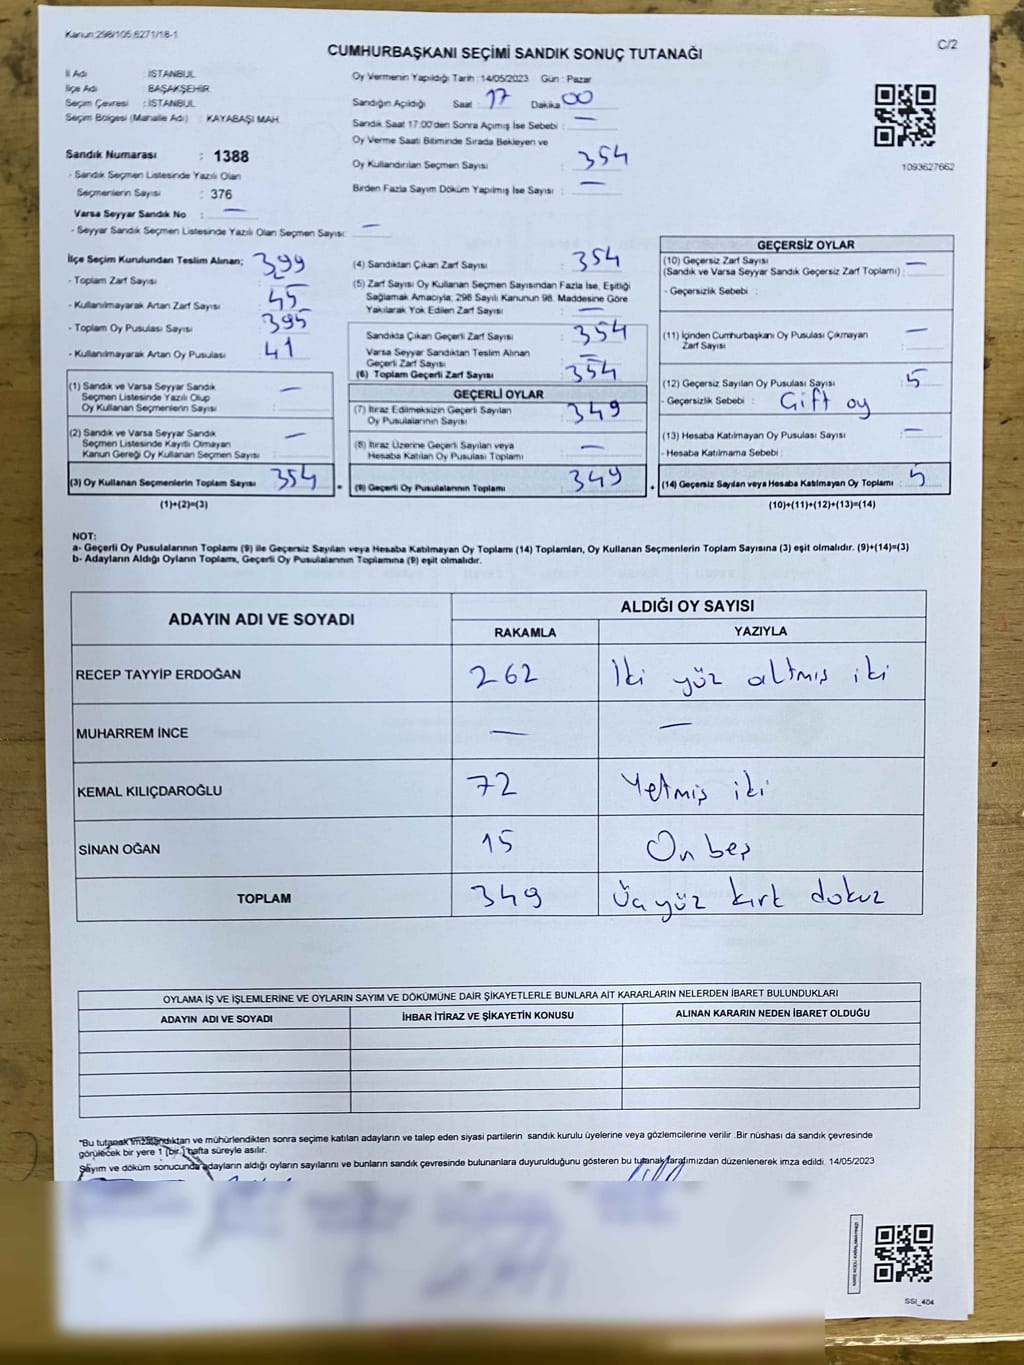 Kanun:298/105,6271/18-1
C/2
CUMHURBAŞKANI SEÇİMİ SANDIK SONUÇ TUTANAĞI
İl Adı : İSTANBUL
İlçe Adı : BAŞAKŞEHİR
Seçim Çevresi : İSTANBUL
Seçim Bölgesi (Mahalle Adı) : KAYABAŞI MAH.
Sandık Numarası : 1388
- Sandık Seçmen Listesinde Yazılı Olan
Seçmenlerin Sayısı : 376
Varsa Seyyar Sandık No : —
- Seyyar Sandık Seçmen Listesinde Yazılı Olan Seçmen Sayısı: —
Oy Vermenin Yapıldığı Tarih : 14/05/2023 Gün : Pazar
Sandığın Açıldığı Saat : 17 Dakika : 00
Sandık Saat 17:00'den Sonra Açımış İse Sebebi : —
Oy Verme Saati Bitiminde Sırada Bekleyen ve
Oy Kullandırılan Seçmen Sayısı : 354
Birden Fazla Sayım Döküm Yapılmış İse Sayısı : —
1093627662
İlçe Seçim Kurulundan Teslim Alınan; 399
- Toplam Zarf Sayısı :
- Kullanılmayarak Artan Zarf Sayısı : 45
- Toplam Oy Pusulası Sayısı : 395
- Kullanılmayarak Artan Oy Pusulası : 41
(1) Sandık ve Varsa Seyyar Sandık
Seçmen Listesinde Yazılı Olup
Oy Kullanan Seçmenlerin Sayısı : —
(2) Sandık ve Varsa Seyyar Sandık
Seçmen Listesinde Kayıtlı Olmayan
Kanun Gereği Oy Kullanan Seçmen Sayısı : —
(3) Oy Kullanan Seçmenlerin Toplam Sayısı : 354
(1)+(2)=(3)
(4) Sandıktan Çıkan Zarf Sayısı : 354
(5) Zarf Sayısı Oy Kullanan Seçmen Sayısından Fazla İse, Eşitliği
Sağlamak Amacıyla; 298 Sayılı Kanunun 98. Maddesine Göre
Yakılarak Yok Edilen Zarf Sayısı : —
Sandıkta Çıkan Geçerli Zarf Sayısı : 354
Varsa Seyyar Sandıktan Teslim Alınan
Geçerli Zarf Sayısı : —
(6) Toplam Geçerli Zarf Sayısı : 354
GEÇERLİ OYLAR
(7) İtiraz Edilmeksizin Geçerli Sayılan
Oy Pusulalarının Sayısı : 349
(8) İtiraz Üzerine Geçerli Sayılan veya
Hesaba Katılan Oy Pusulası Toplamı : —
(9) Geçerli Oy Pusulalarının Toplamı : 349
GEÇERSİZ OYLAR
(10) Geçersiz Zarf Sayısı
(Sandık ve Varsa Seyyar Sandık Geçersiz Zarf Toplamı) : —
- Geçersizlik Sebebi :
(11) İçinden Cumhurbaşkanı Oy Pusulası Çıkmayan
Zarf Sayısı : —
(12) Geçersiz Sayılan Oy Pusulası Sayısı : 5
- Geçersizlik Sebebi : Çift oy
(13) Hesaba Katılmayan Oy Pusulası Sayısı : —
- Hesaba Katılmama Sebebi :
(14) Geçersiz Sayılan veya Hesaba Katılmayan Oy Toplamı : 5
(10)+(11)+(12)+(13)=(14)
NOT:
a- Geçerli Oy Pusulalarının Toplamı (9) ile Geçersiz Sayılan veya Hesaba Katılmayan Oy Toplamı (14) Toplamları, Oy Kullanan Seçmenlerin Toplam Sayısına (3) eşit olmalıdır. (9)+(14)=(3)
b- Adayların Aldığı Oyların Toplamı, Geçerli Oy Pusulalarının Toplamına (9) eşit olmalıdır.
ADAYIN ADI VE SOYADI
ALDIĞI OY SAYISI
RAKAMLA YAZIYLA
RECEP TAYYİP ERDOĞAN 262 İki yüz altmış iki
MUHARREM İNCE — —
KEMAL KILIÇDAROĞLU 72 Yetmiş iki
SİNAN OĞAN 15 On beş
TOPLAM 349 Üç yüz kırk dokuz
OYLAMA İŞ VE İŞLEMLERİNE VE OYLARIN SAYIM VE DÖKÜMÜNE DAİR ŞİKAYETLERLE BUNLARA AİT KARARLARIN NELERDEN İBARET BULUNDUKLARI
ADAYIN ADI VE SOYADI İHBAR İTİRAZ VE ŞİKAYETİN KONUSU ALINAN KARARIN NEDEN İBARET OLDUĞU
*Bu tutanak imzalandıktan ve mühürlendikten sonra seçime katılan adayların ve talep eden siyasi partilerin sandık kurulu üyelerine veya gözlemcilerine verilir .Bir nüshası da sandık çevresinde
görülecek bir yere 1 (bir ) hafta süreyle asılır.
Sayım ve döküm sonucunda adayların aldığı oyların sayılarını ve bunların sandık çevresinde bulunanlara duyurulduğunu gösteren bu tutanak tarafımızdan düzenlenerek imza edildi. 14/05/2023
SSI_404